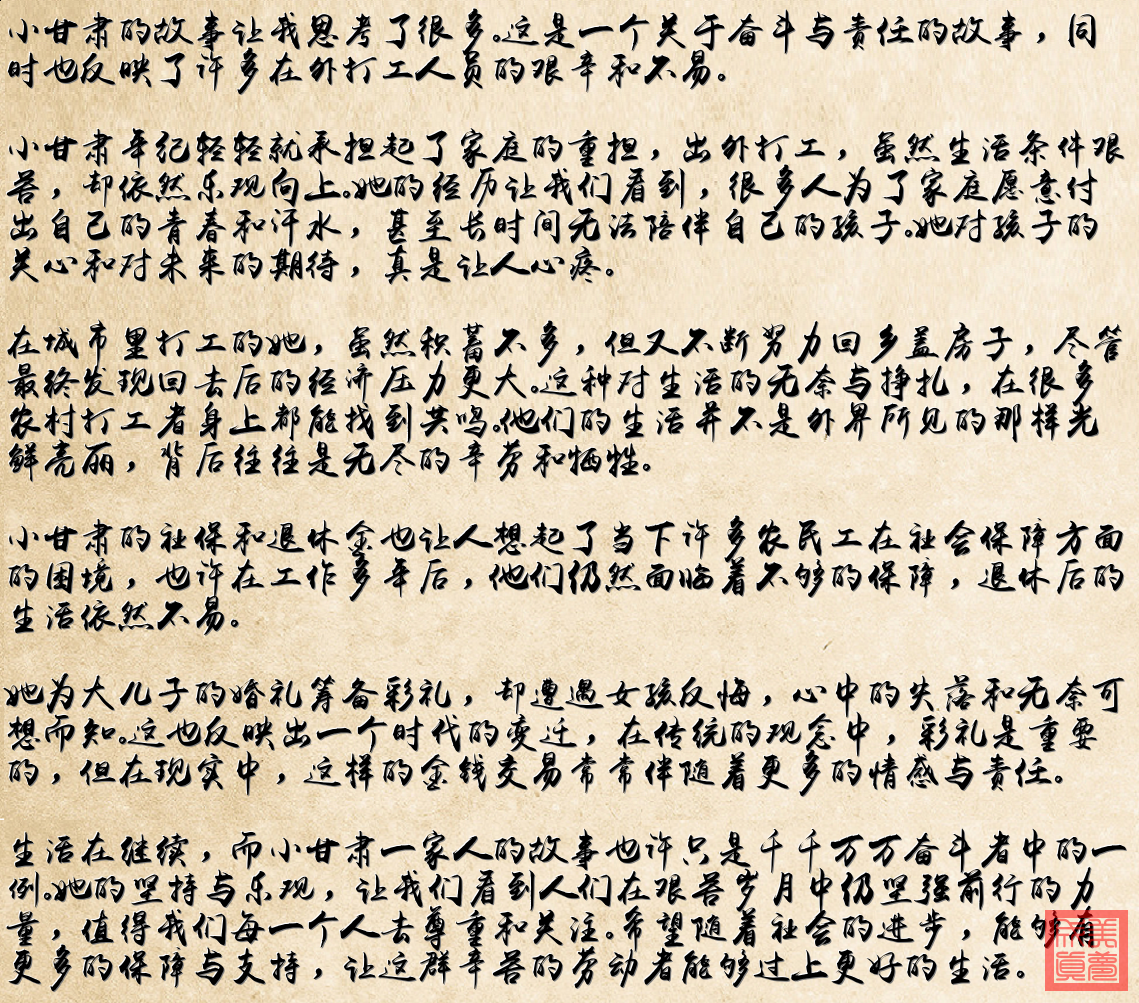 小甘肃的故事让我思考了很多。这是一个关于奋斗与责任的故事，同
时也反映了许多在外打工人员的艰辛和不易。
小甘肃年纪轻轻就承担起了家庭的重担，出外打工，虽然生活条件艰
苦，却依然乐观向上。她的经历让我们看到，很多人为了家庭愿意付
出自己的青春和汗水，甚至长时间无法陪伴自己的孩子。她对孩子的
关心和对未来的期待，真是让人心疼。
在城市里打工的她，虽然积蓄不多，但又不断努力回乡盖房子，尽管
最终发现回去后的经济压力更大。这种对生活的无奈与挣扎，在很多
农村打工者身上都能找到共鸣。他们的生活并不是外界所见的那样光
鲜亮丽，背后往往是无尽的辛劳和牺牲。
小甘肃的社保和退休金也让人想起了当下许多农民工在社会保障方面
的困境，也许在工作多年后，他们仍然面临着不够的保障，退休后的
生活依然不易。
她为大儿子的婚礼筹备彩礼，却遭遇女孩反悔，心中的失落和无奈可
想而知。这也反映出一个时代的变迁，在传统的观念中，彩礼是重要
的，但在现实中，这样的金钱交易常常伴随着更多的情感与责任。
生活在继续，而小甘肃一家人的故事也许只是千千万万奋斗者中的一
例。她的坚持与乐观，让我们看到人们在艰苦岁月中仍坚强前行的力
量，值得我们每一个人去尊重和关注。希望随着社会的进步，能够有
更多的保障与支持，让这群辛苦的劳动者能够过上更好的生活。